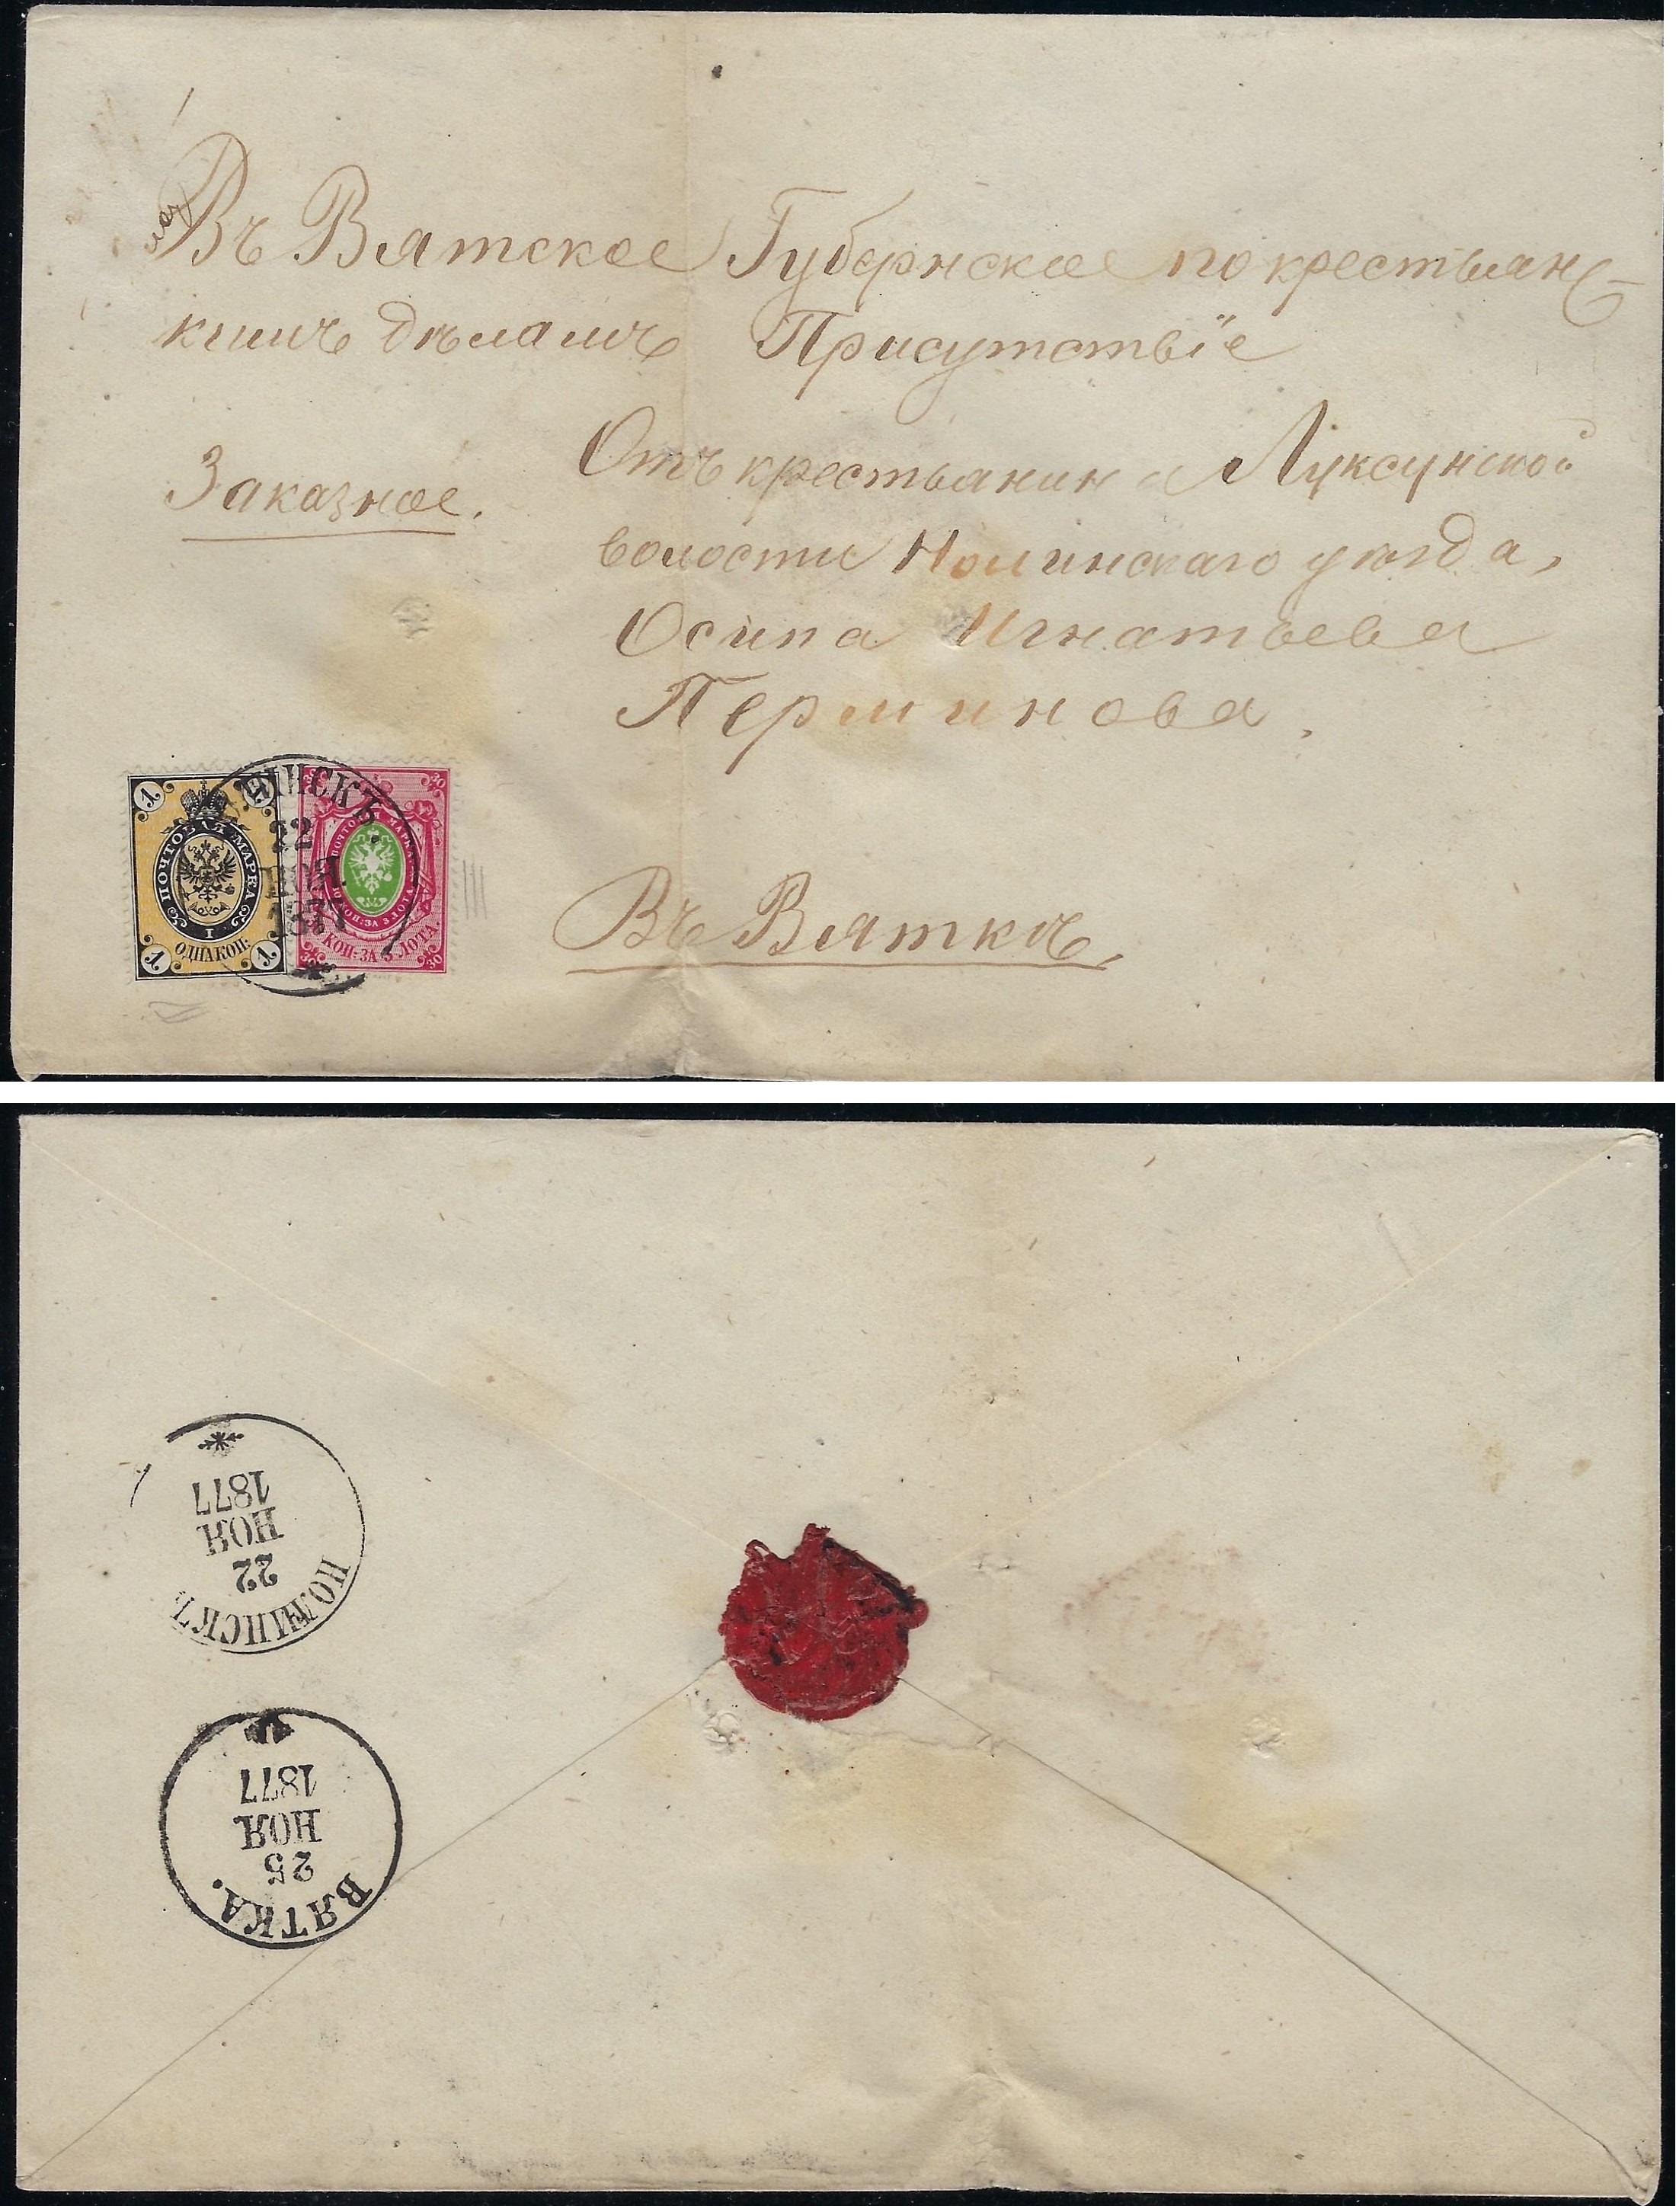 Въ Вятское Губернское по крестьянс
кимъ дѣламъ Присутствіе
Заказное.
Отъ крестьянина Луксунской
волости Нолинскаго уѣзда,
Осипа Игнатьева
Перминова.
Въ Вяткѣ,
1
1
1
ПОЧТОВАЯ МАРКА
1
ОДНА КОП:
30
30
30
30
ПОЧТОВАЯ МАРКА
30 КОП: ЗА 3 ЛОТА
КОП: ЗА 3 ЛОТА
22
НОЯ
1877
НОЛИНСКЪ
22
НОЯ
1877
ВЯТКА.
25
НОЯ
1877